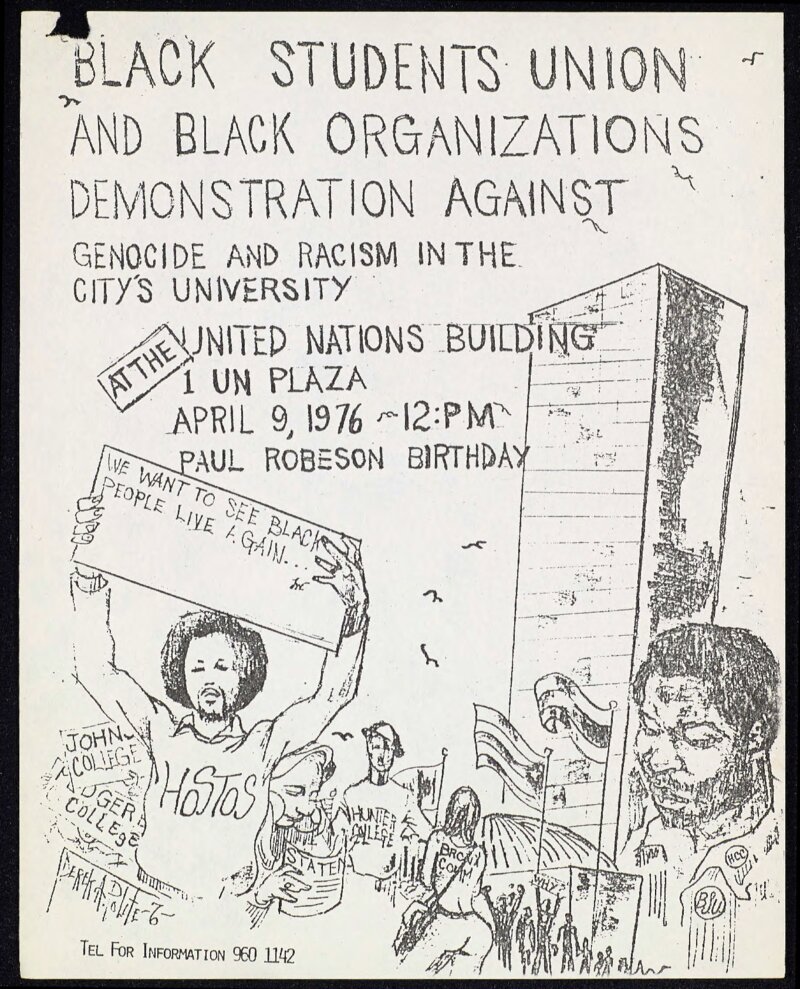 BLACK STUDENTS UNION
AND BLACK ORGANIZATIONS
DEMONSTRATION AGAINST
GENOCIDE AND RACISM IN THE
CITY'S UNIVERSITY
AT THE
UNITED NATIONS BUILDING
1 UN PLAZA
APRIL 9, 1976 ~12:PM~
PAUL ROBESON BIRTHDAY
WE WANT TO SEE BLACK
PEOPLE LIVE AGAIN...
JOHN
COLLEGE
HOSTOS
HUNTER
COLLEGE
DGER
COLLEGE
STATEN
BRONX
COMM
WHY
HCC
BSU
TEL FOR INFORMATION 960 1142